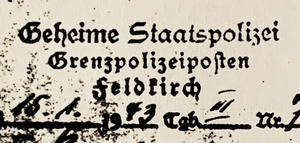 Geheime Staatspolizei
Grenzpolizeiposten
Feldkirch
15. 1. 1943 Tgb. III Nr.